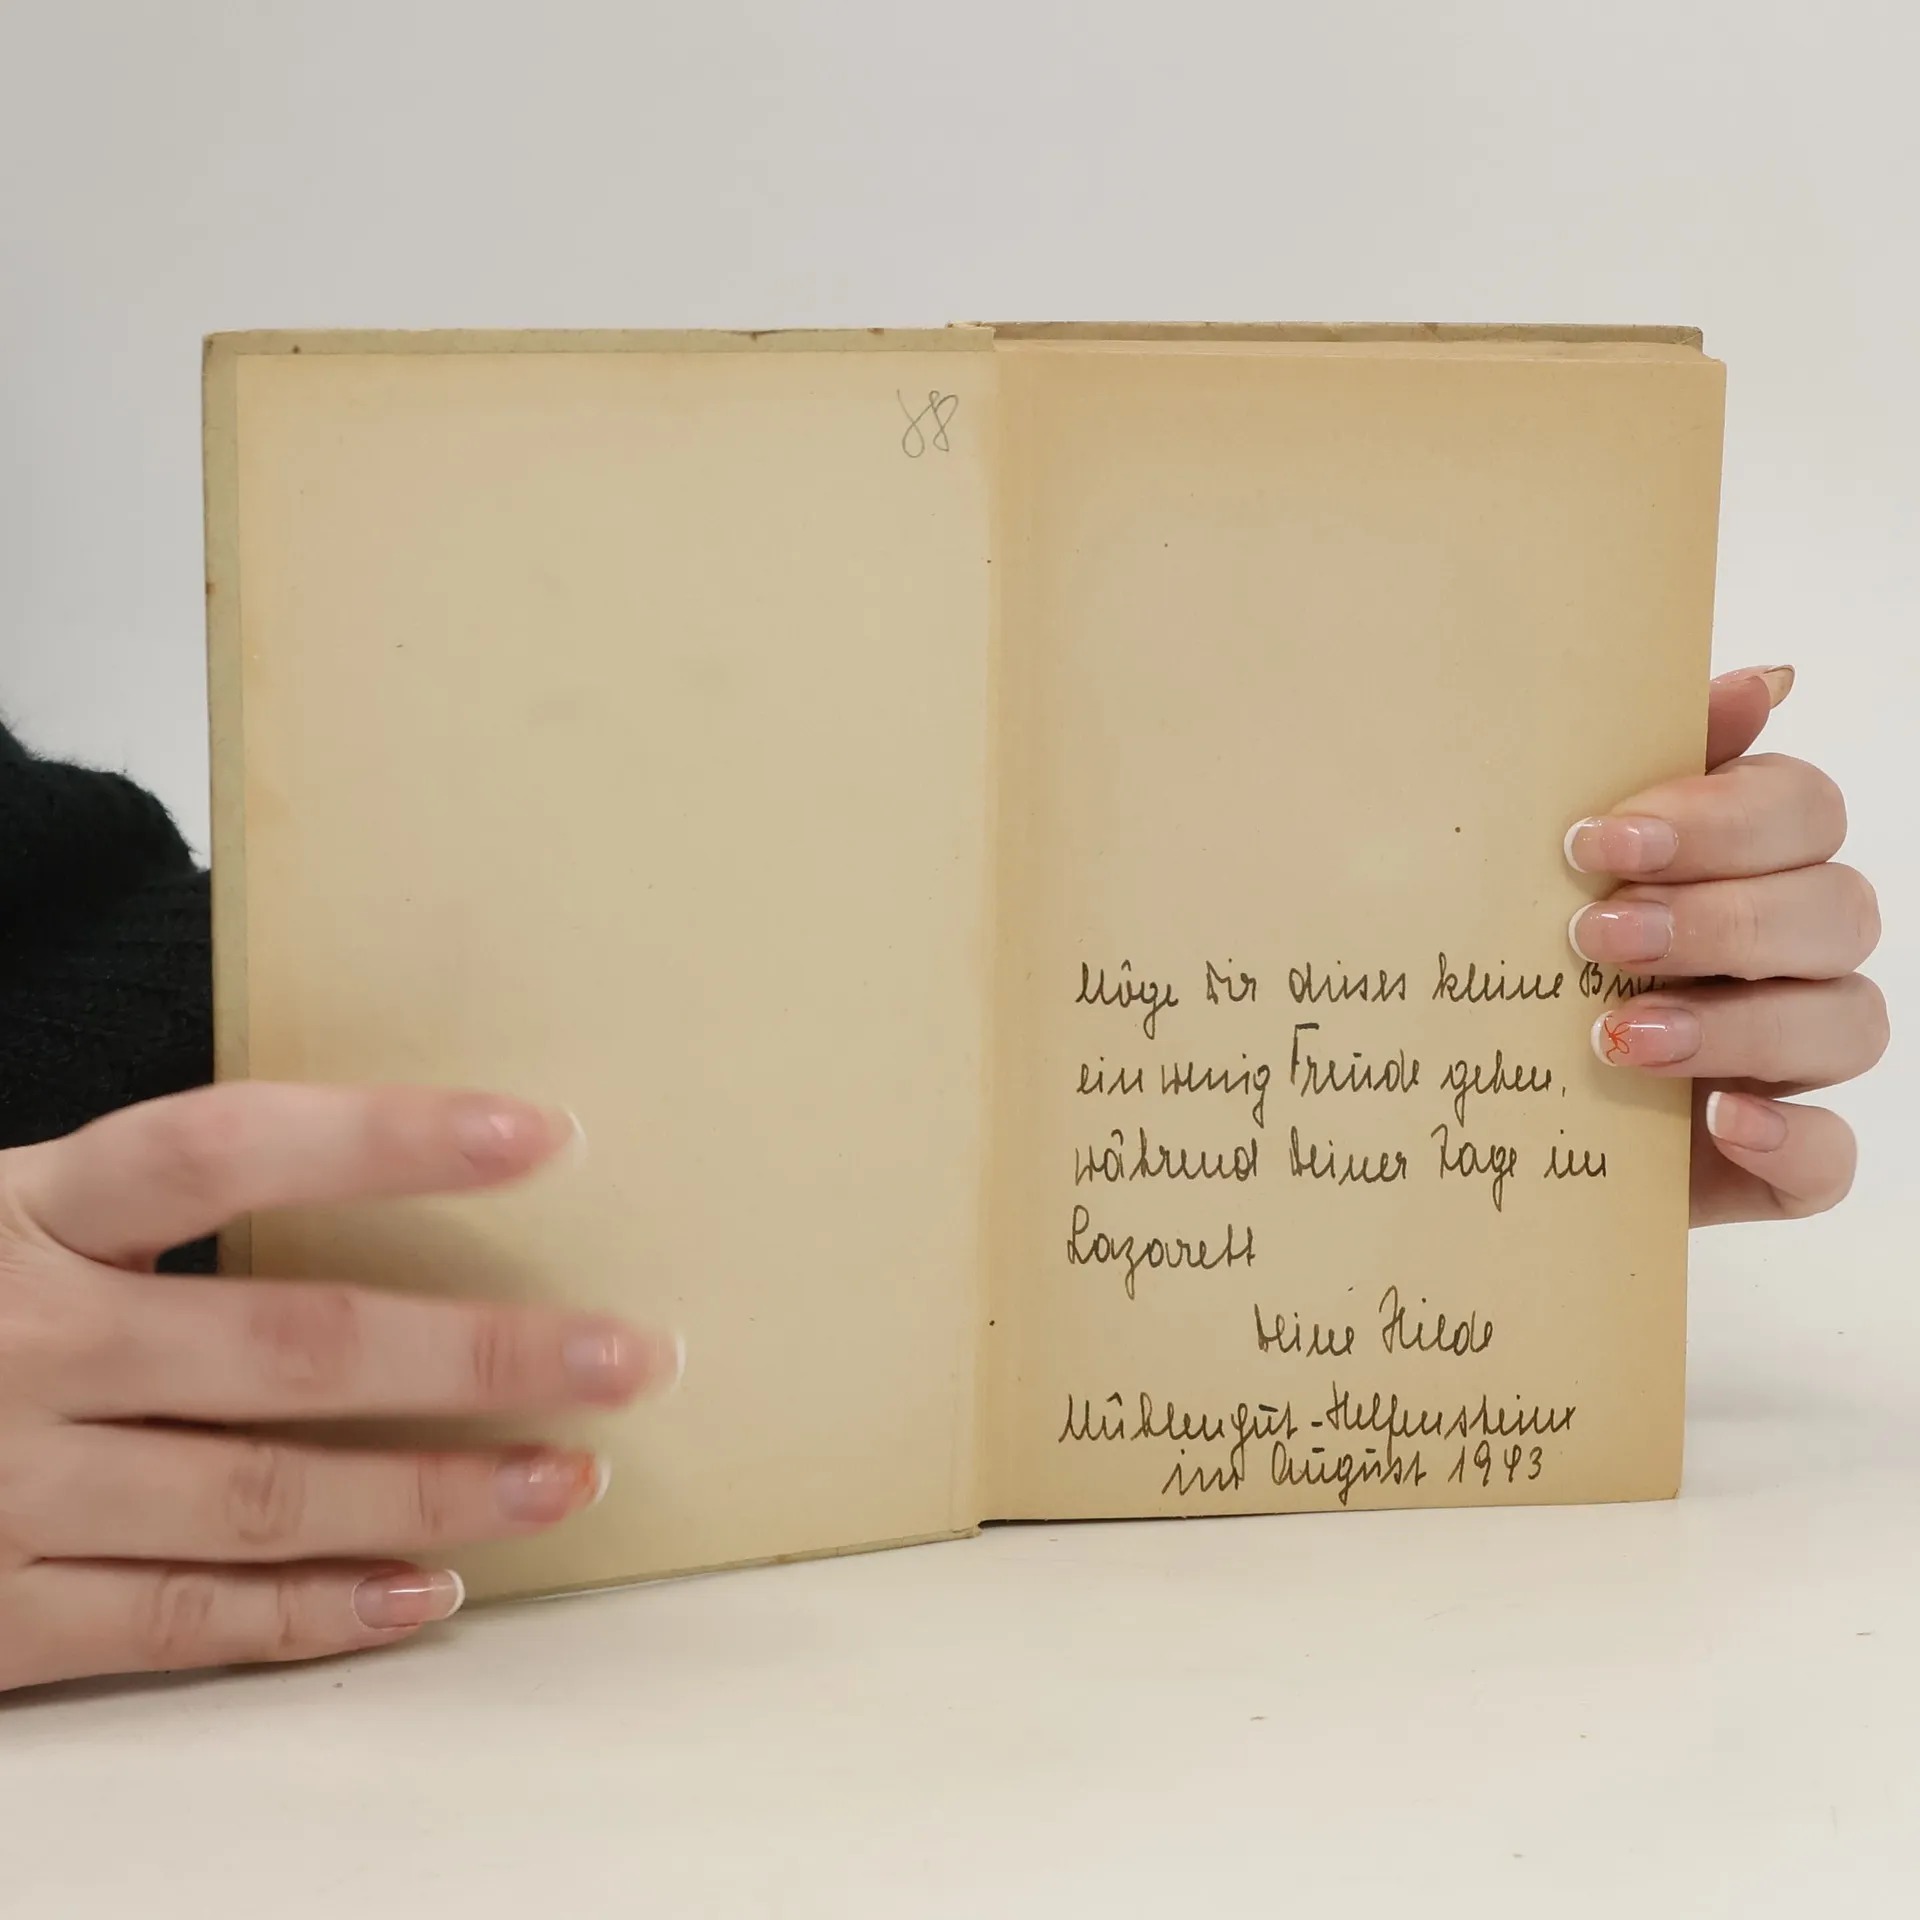 88
Möge Dir dieses kleine
ein wenig Freude geben,
während Deiner Tage im
Lazarett
Deine Hilde
Mühlengut-Helfenstein
im August 1943